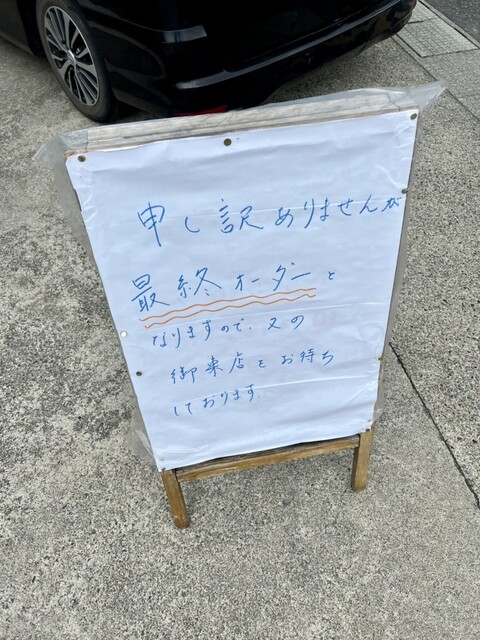 申し訳ありませんが
最終オーダーと
なりますので、又の
御来店をお待ち
しております